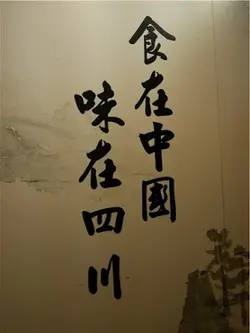 食在中國
味在四川